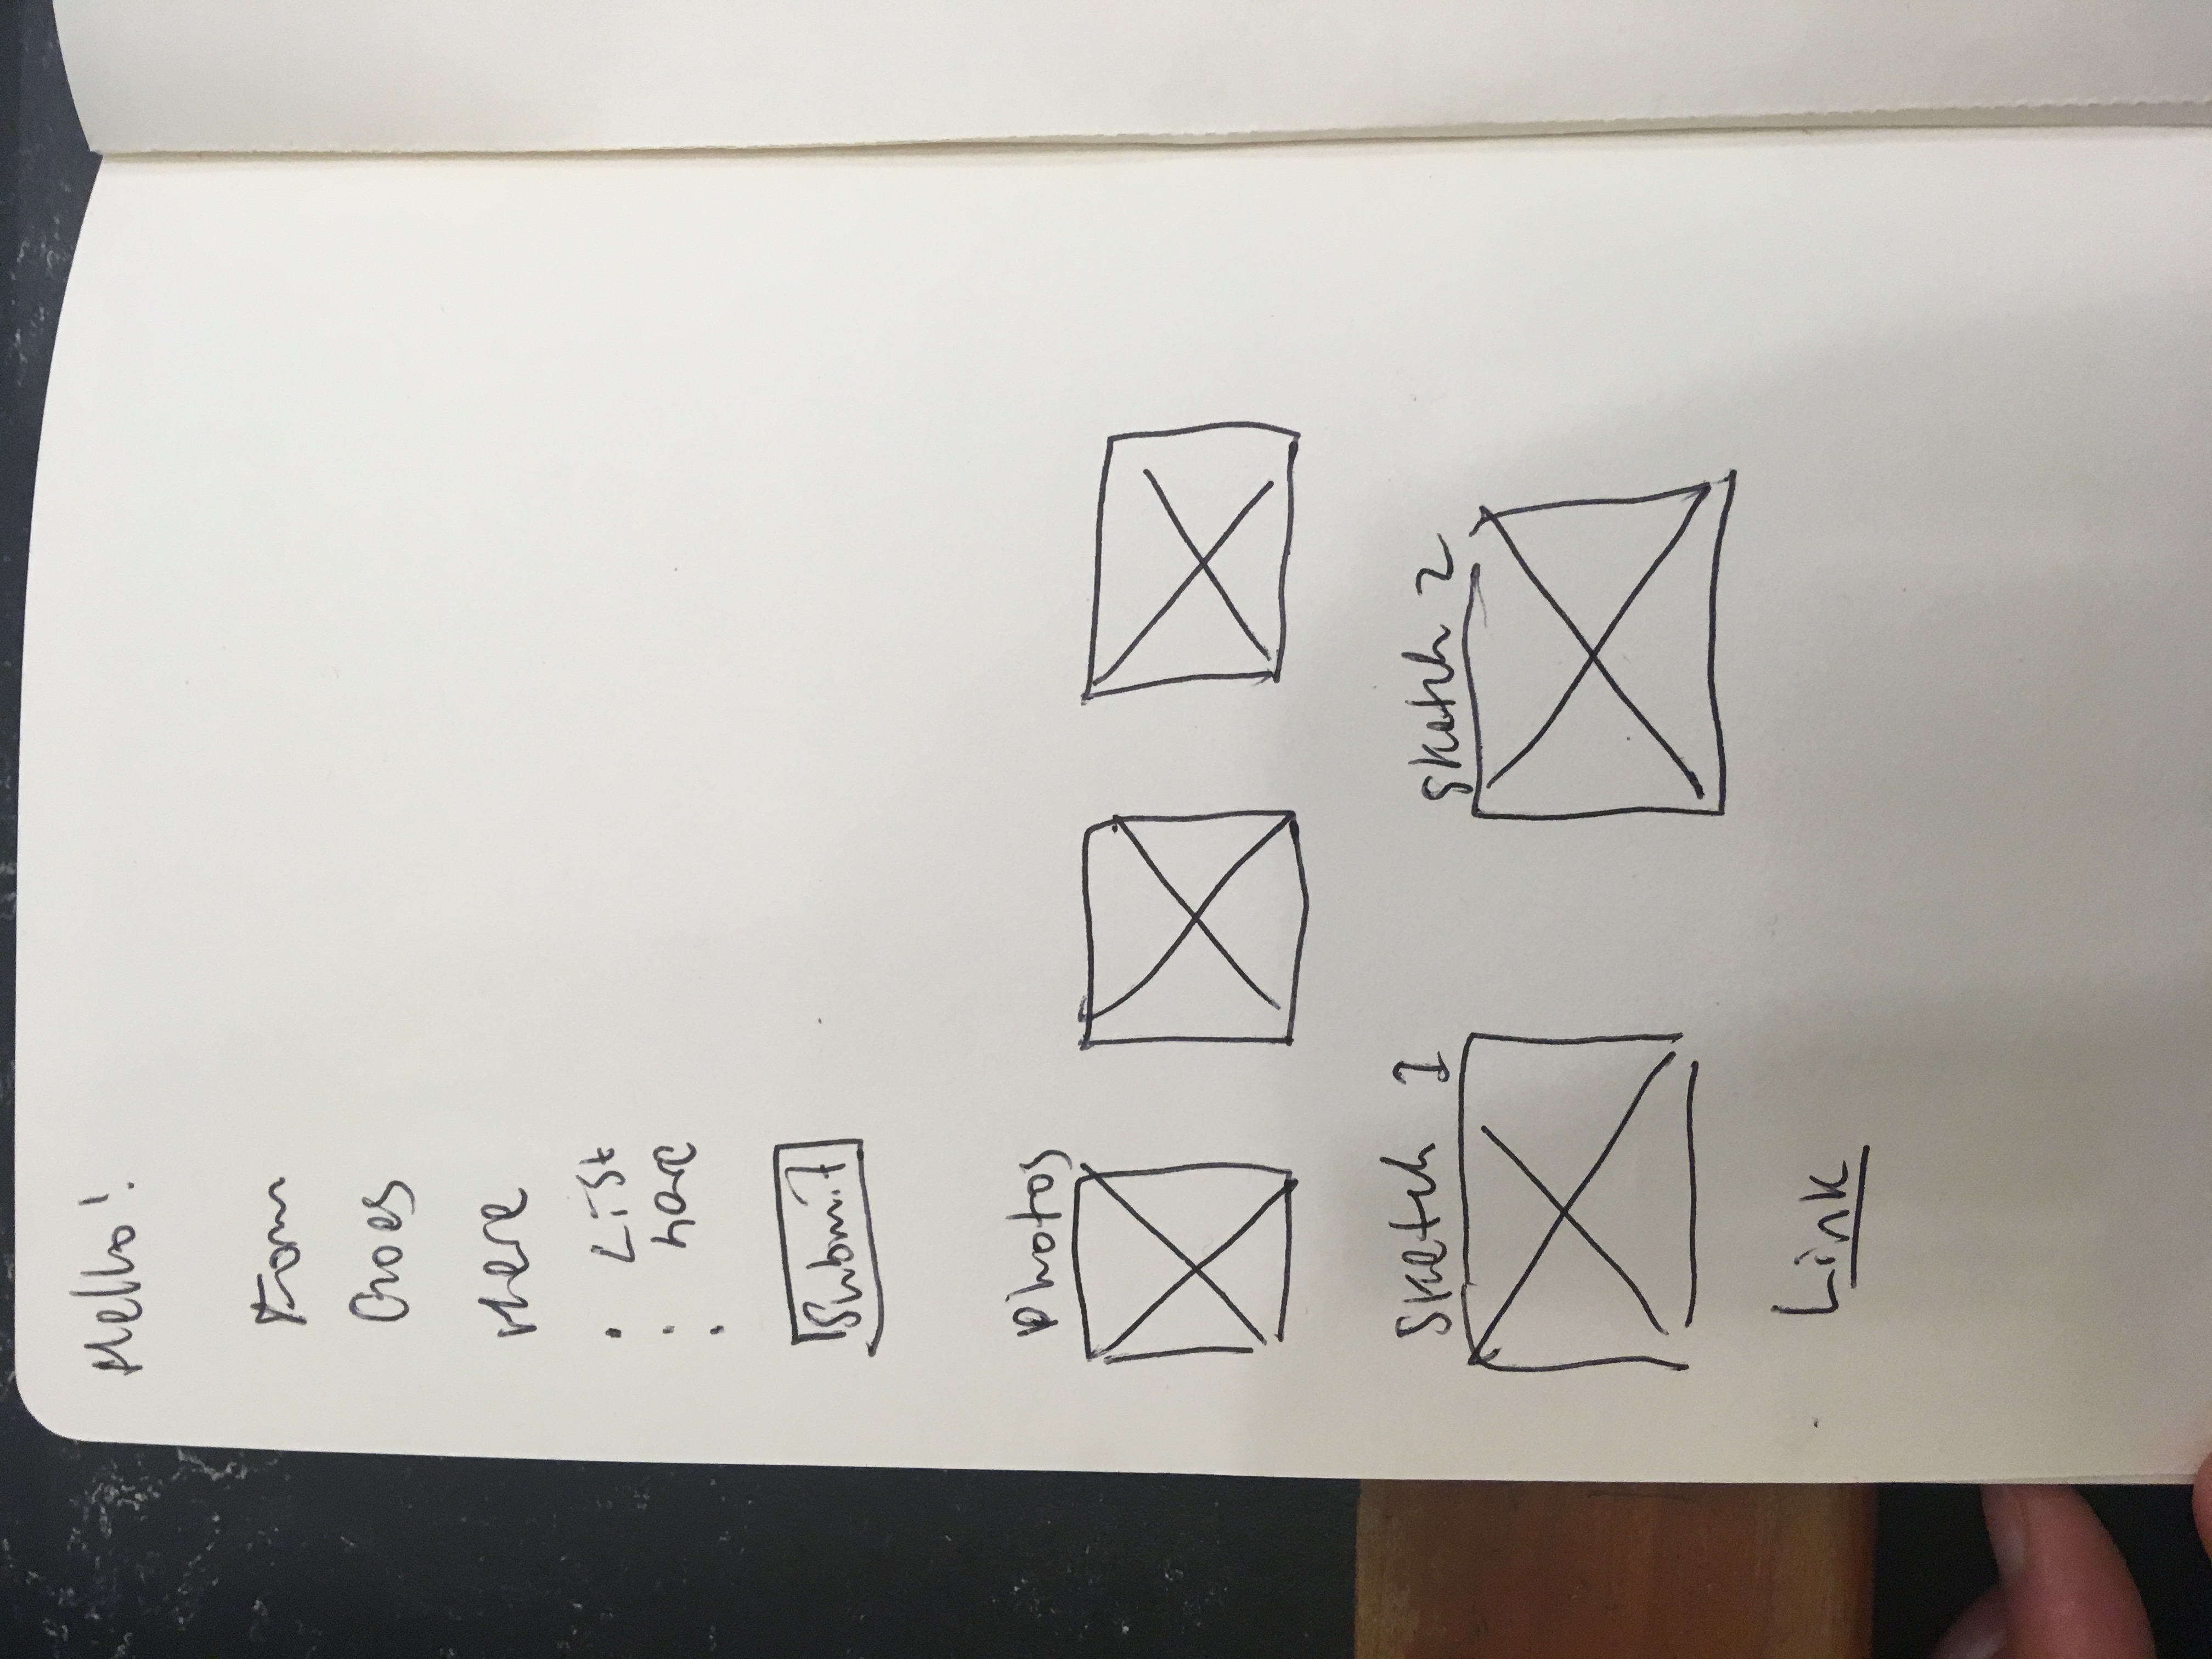 Hello!
Form
Goes
Here
• List
• here
•
Submit
Photos
Sketch 1 Sketch 2
Link